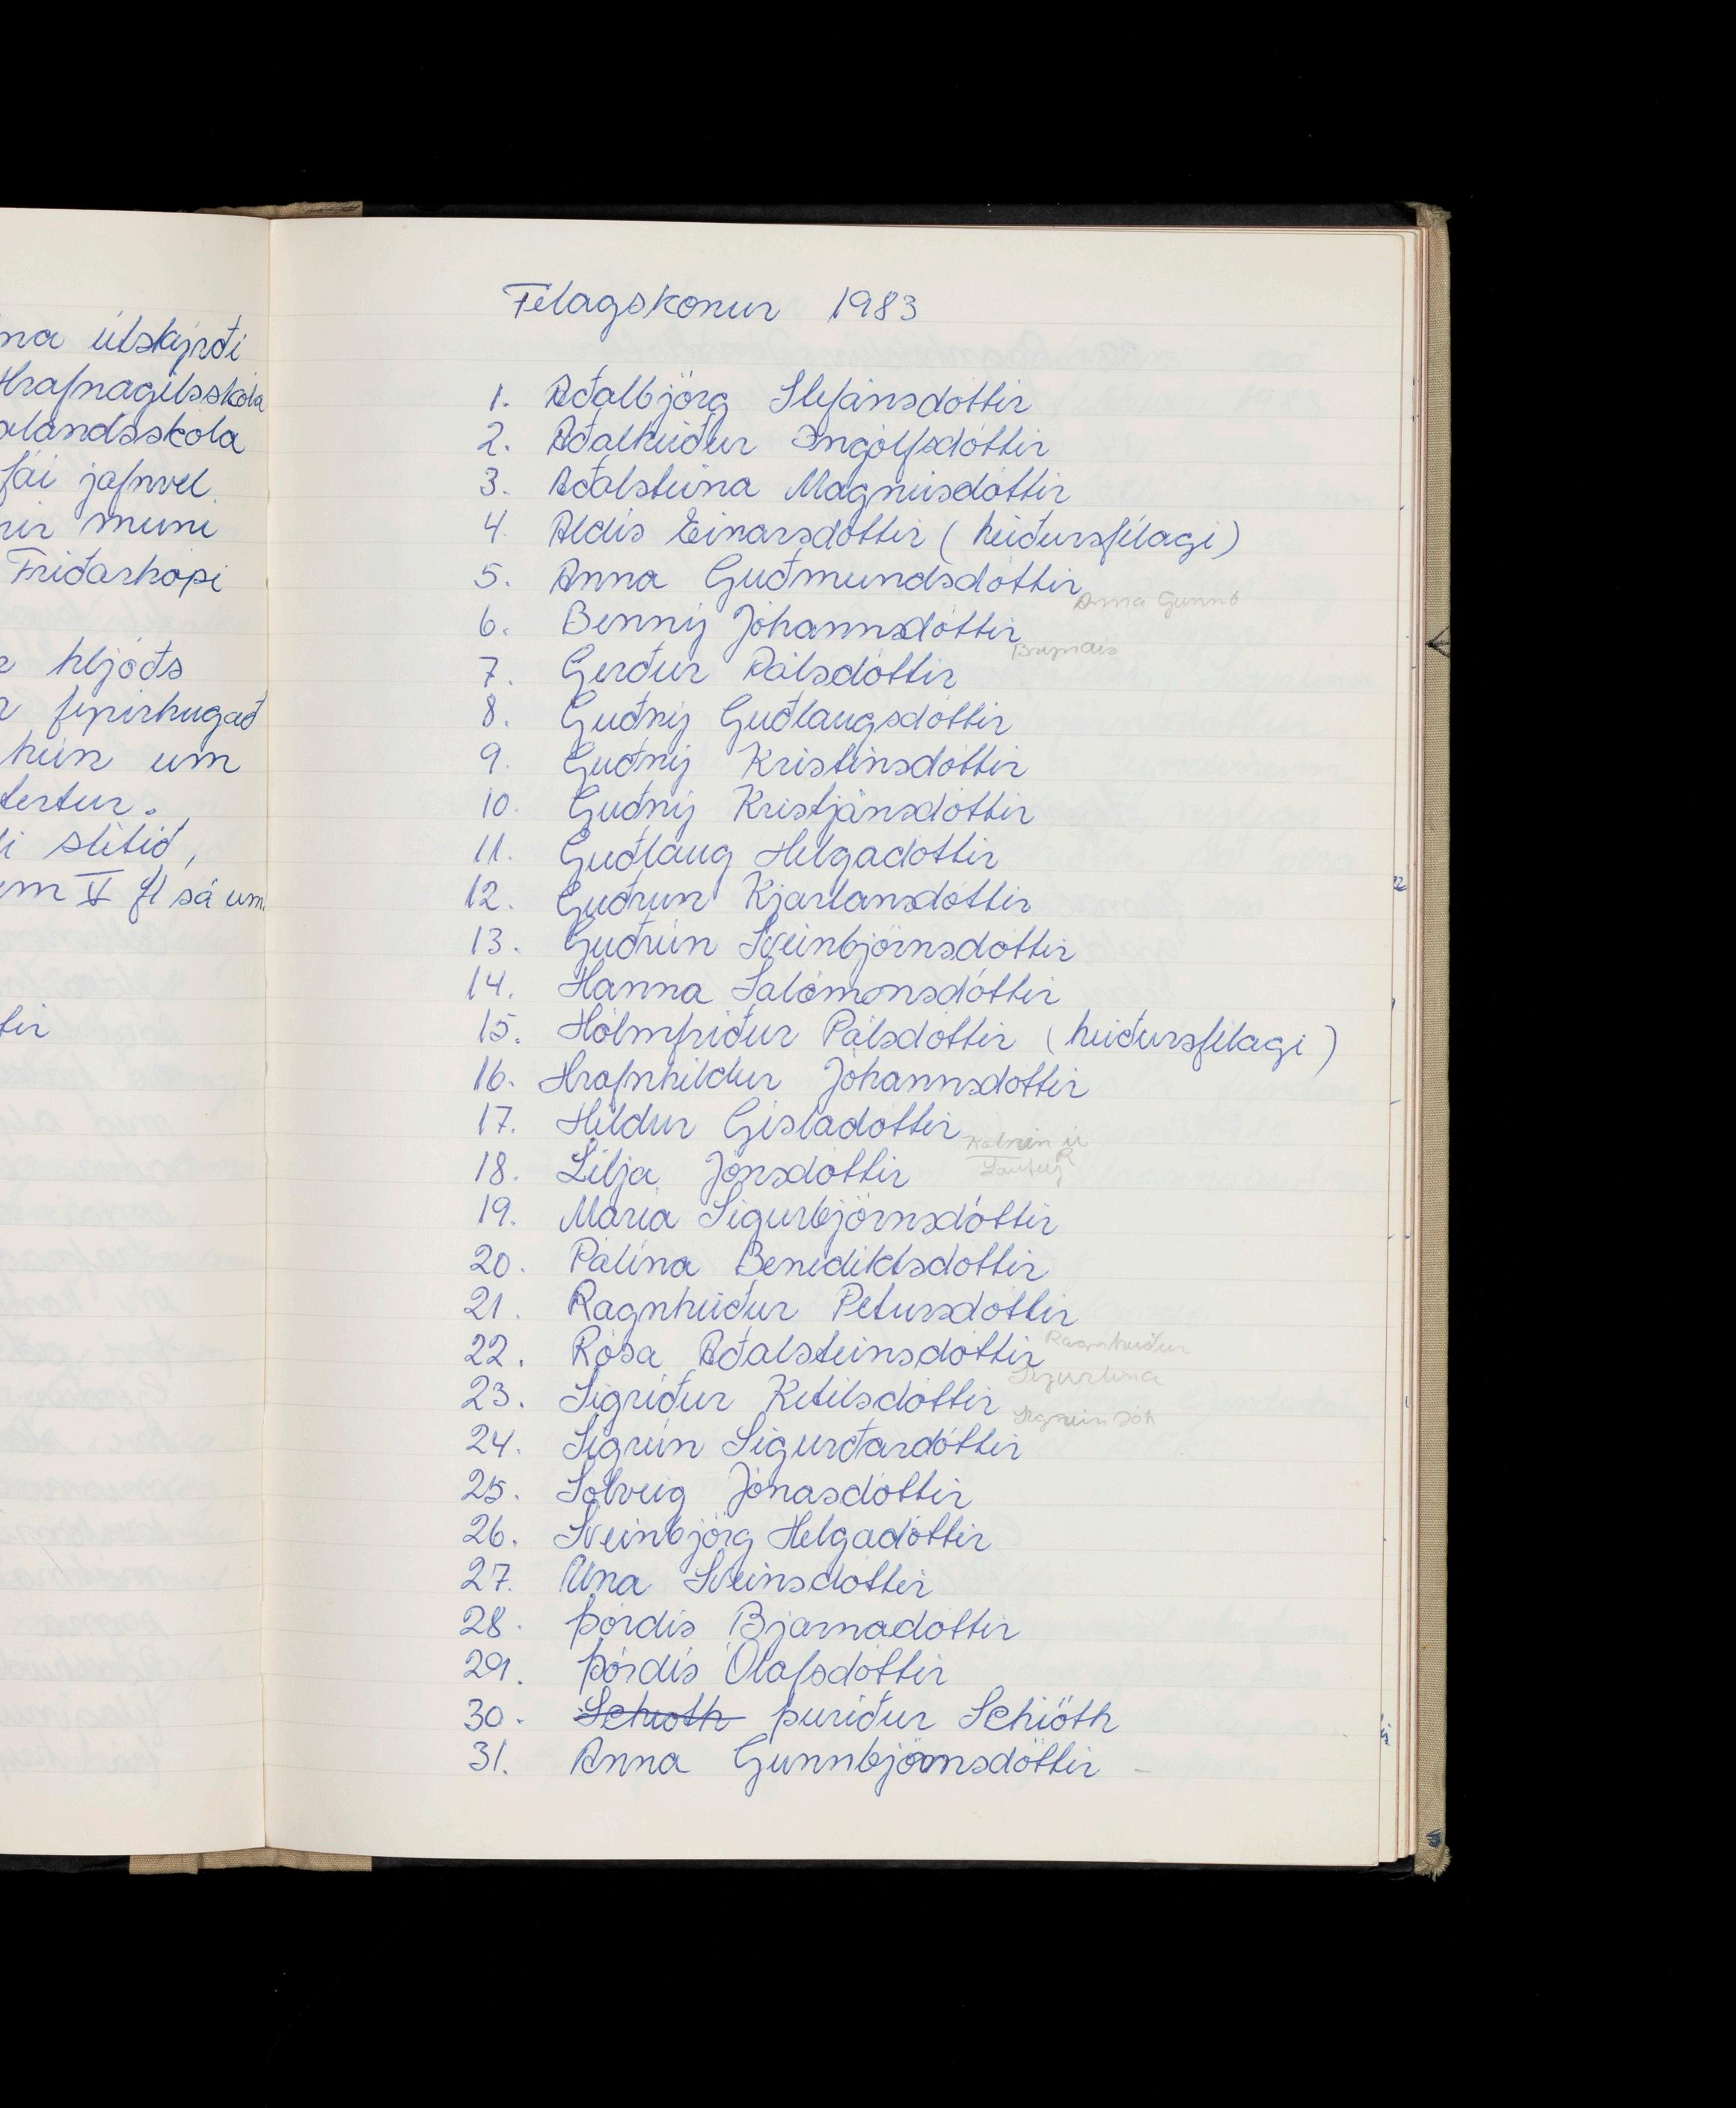 na útskýrði
Hrafnagilsskóla
alandsskóla
fái jafnvel
rir muni
Friðarhópi
hljóðs
fyrirhugað
hún um
tertur.
i slitið,
em V fl sá um
tir
Félagskonur 1983
1. Aðalbjörg Stefánsdóttir
2. Aðalheiður Ingólfsdóttir
3. Aðalsteina Magnúsdóttir
4. Aldís Einarsdóttir (heiðursfélagi)
5. Anna Guðmundsdóttir
Anna Gunnb
6. Benný Jóhannsdóttir
Bryndís
7. Gerður Pálsdóttir
8. Guðný Guðlaugsdóttir
9. Guðný Kristinsdóttir
10. Guðný Kristjánsdóttir
11. Guðlaug Helgadóttir
12. Guðrun Kjartansdóttir
13. Guðrún Sveinbjörnsdóttir
14. Hanna Salómonsdóttir
15. Hólmfríður Pálsdóttir (heiðursfélagi)
16. Hrafnhildur Jóhannsdóttir
17. Hildur Gísladóttir
Katrín Ú
18. Lilja Jónsdóttir
19. María Sigurbjörnsdóttir
20. Pálína Benediktsdóttir
21. Ragnheiður Pétursdóttir
22. Rósa Aðalsteinsdóttir
Ragnheiður
Sigurlína
23. Sigríður Ketilsdóttir
Sigrún Jóh
24. Sigrún Sigurðardóttir
25. Sólveig Jónasdóttir
26. Sveinbjörg Helgadóttir
27. Una Sveinsdóttir
28. Þórdís Bjarnadóttir
29. Þórdís Ólafsdóttir
30. Schiöth Þuríður Schiöth
31. Anna Gunnbjörnsdóttir